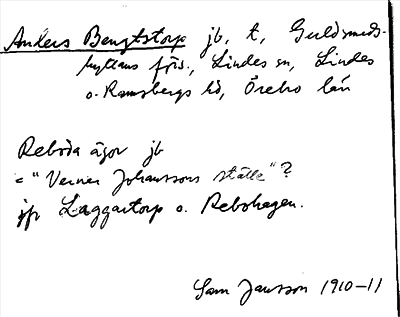 Anders Bengtstorp jb, t, Guldsmeds-
hyttans förs., Lindes sn, Lindes
o. Ramsbergs hd, Örebro län
Reboda ägor jb
= "Verner Johanssons ställe"?
jfr Laggartorp o. Rebohagen.
Sam Jansson 1910-11